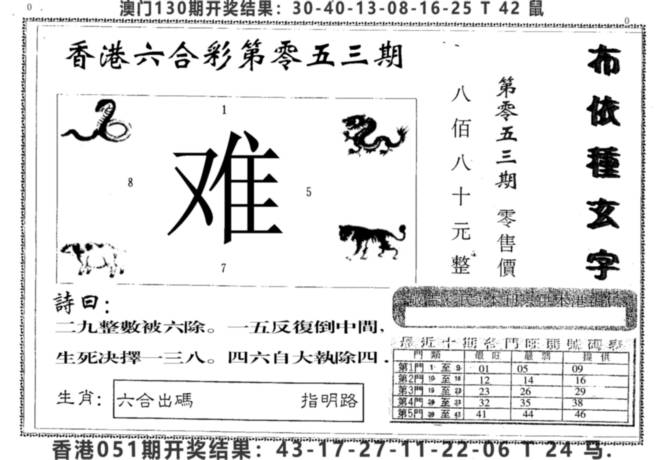 澳门130期开奖结果：30-40-13-08-16-25 T 42 鼠
0
0
香港六合彩第零五三期
1
8
难
5
7
第零五三期 零售價
八佰八十元整
布依種玄字
詩曰：
二九整數被六除。一五反復倒中間，
生死决擇一三八。四六自大執除四．
生肖：六合出碼 指明路
最近十期各門旺開號碼表
門類 最旺 最弱 提供
第1門 1 至 9 01 05 09
第2門 10 至 18 12 14 16
第3門 至 23 26 29
第4門 至 32 35 38
第5門 至 41 44 46
香港051期开奖结果：43-17-27-11-22-06 T 24 马．